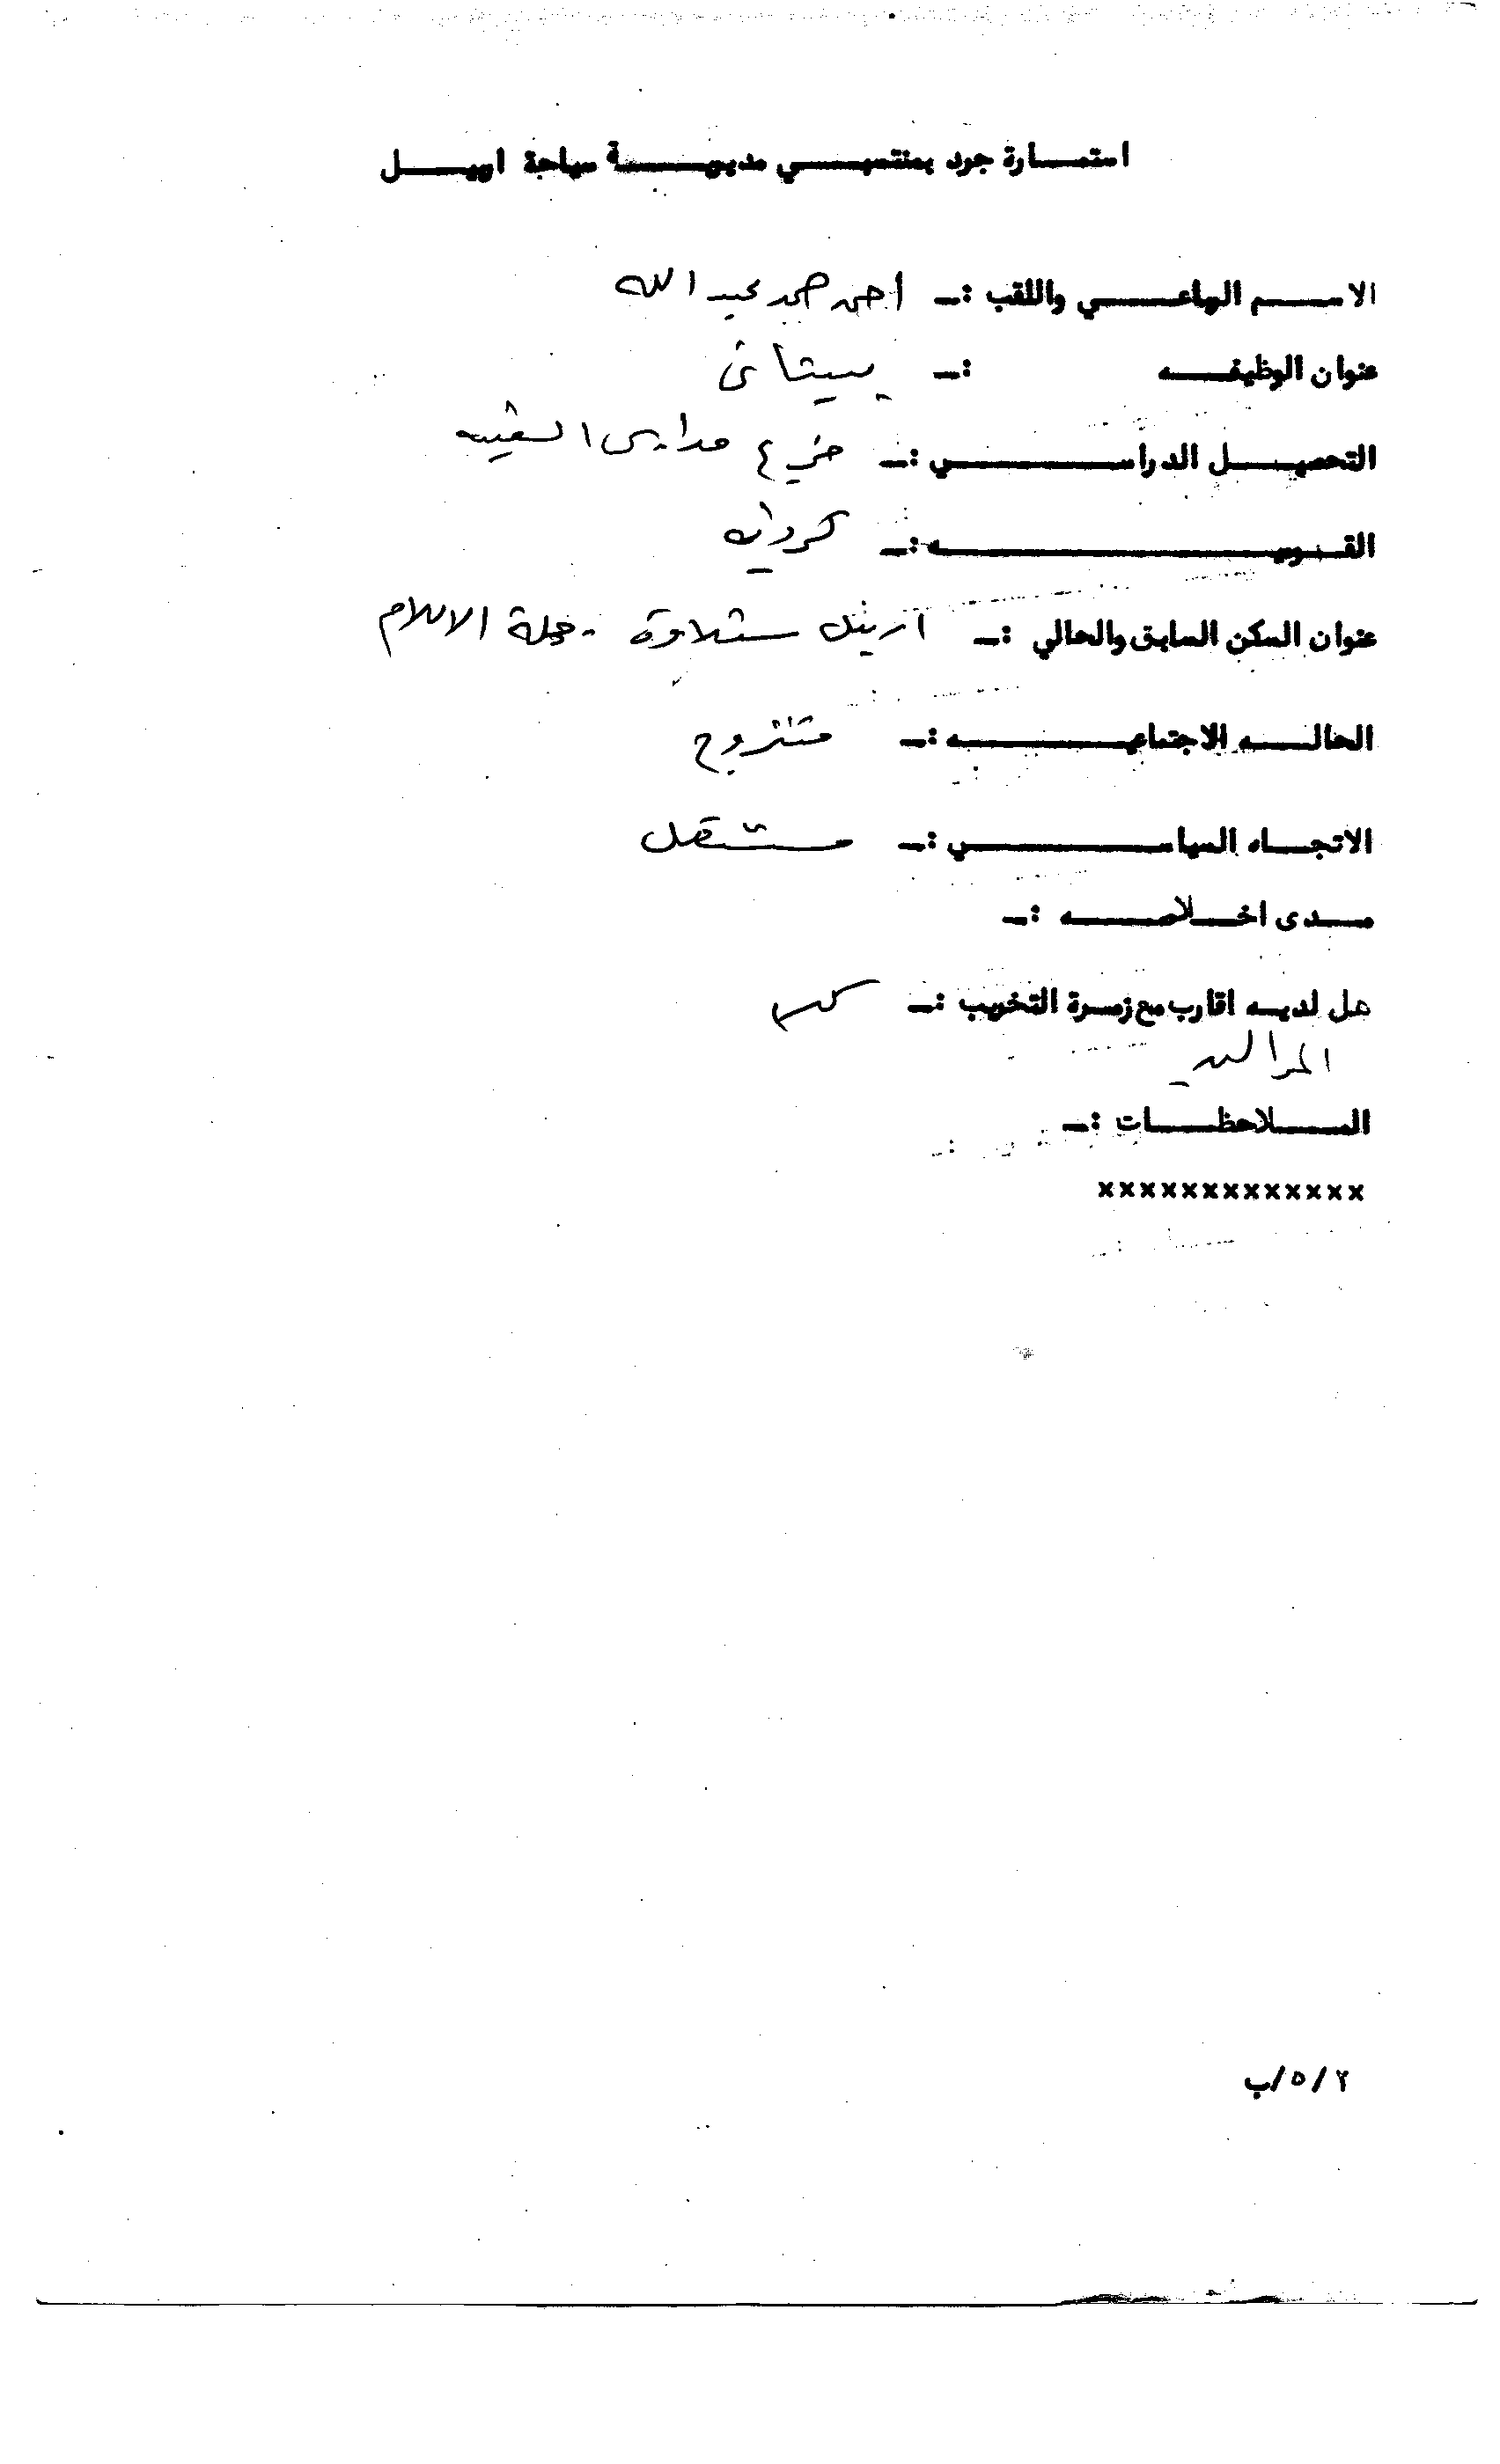 استمارة جرد بمنتسبي مديرية سياحة اربيل
الاسم الرباعي واللقب :- احمد حمد عبد الله
عنوان الوظيفه :- بستاني
التحصيل الدراسي :- خريج مدارس الشعبيه
القوميه :- كردي
عنوان السكن السابق والحالي :- اربيل ستلاوة - محلة الاسلام
الحاله الاجتماعيه :- متزوج
الاتجاه السياسي :- مستقل
مدى اخلاصه :-
هل لديه اقارب مع زمرة التخريب :- كلا
الملاحظات :-
xxxxxxxxxxxxx
٢/٥/ب